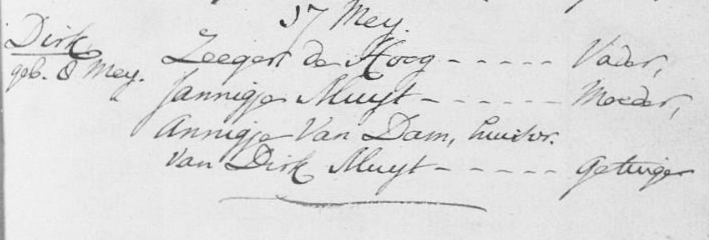 17 Mey.
Dirk Zeeger de Hoog - - - - - Vader,
geb. 8 Mey. Jannigje Muyt - - - - - - Moeder,
Annigje Van Dam, huisvr.
Van Dirk Muyt - - - - - - getuige